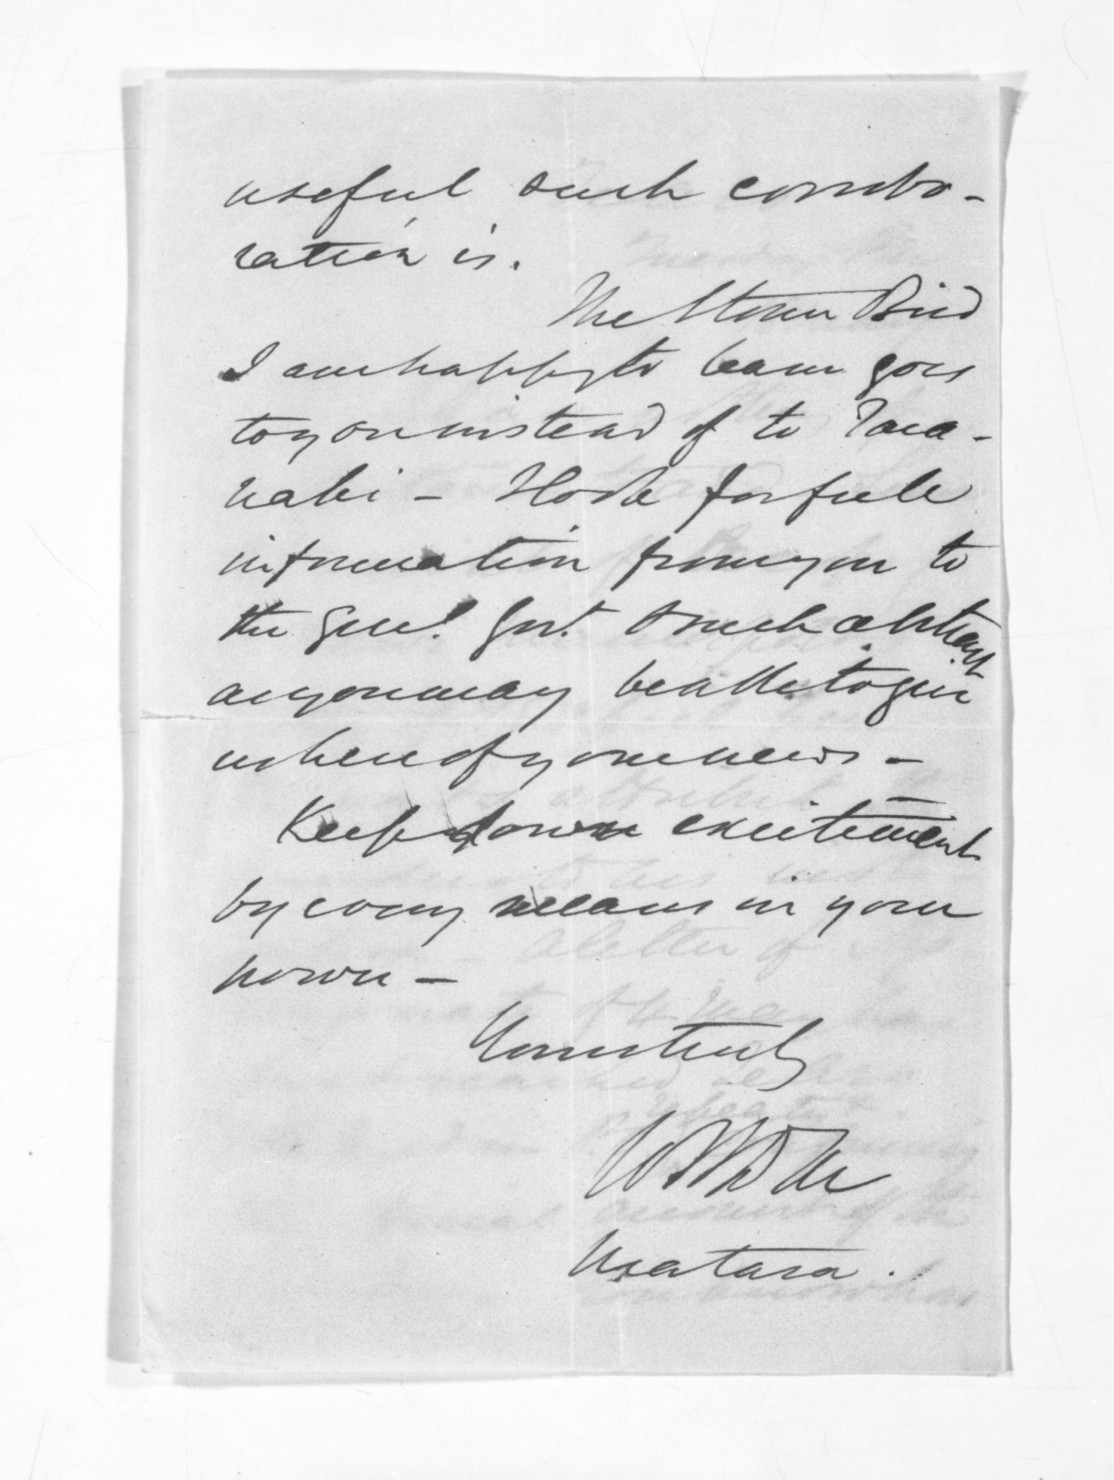 useful such corrobo-
ration is.
The Storm Bird
I am happy to learn goes
to you instead of to Tara-
naki - Look for full
information from you to
the Genl. Govt. & such abstract
as you may be able to give
when of your news -
Keep down excitement
by every means in your
power -
Yours truly
Wai Mata